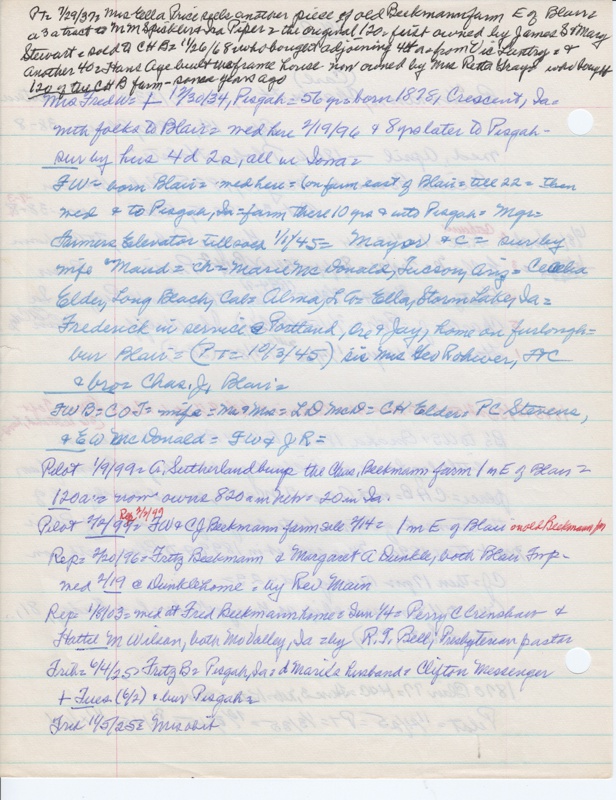 Pt= 7/29/37= Mrs Ella Price sells another piece of old Beckmann farm E of Blair=
a 3 a tract to Mr M Speakers in Piper= the original 120= first owned by James & Mary
Stewart= sold to C H B= 11/26/68= who bought adjoining 40= from &
another 40= Hans Aye built frame house= now owned by Mrs Retta Grays who bought
120 of the C H B farm= some years ago
Mrs Fred W= + 12/30/34, Pisgah= 56 yrs= born 1878, Crescent, Ia=
with folks to Blair= med here 2/19/96 & 8 yrs later to Pisgah=
sur by hus 4 d 2 s, all in Iowa=
FW= born Blair= med here= on farm east of Blair= till 22= then
med & to Pisgah, Ia= farm there 10 yrs & into Pisgah= Mgr=
Farmers Elevator till 1/1/45= Mayor & C= sur by
wife Maud= ch= Marie McDonald, Tucson, Ariz= Cecelia
Elder, Long Beach, Cal= Alma, L A= Ella, Storm Lake, Ia=
Frederick in service @ Portland, Ore & Jay, home on furlough=
bur Blair= (P.T.= 10/3/45) sis Mrs Geo Rohwer, Ft C
& bro= Chas. J, Blair=
FWB= C O T= wife= Mr & Mrs= L D McD= C H Elder= P C Stevens,
& E W McDonald= F W & J R=
Pilot 1/9/99= A, Sutherland buys the Chas. Beckmann farm 1 m E of Blair=
120 a= now owns 820 a in Neb= 20 in Ia.
Rep 2/2/99
Pilot 2/2/99= FW & CJ Beckmann farm sale 2/14= 1 m E of Blair on old Beckmann fm
Rep= 2/20/96= Fritz Beckmann & Margaret A Dunkle, both Blair Imp=
med 2/19 @ Dunkle home= by Rev Main
Rep= 1/8/03= med at Fred Beckmann home= Sun 1/4= Perry C Crenshaw &
Hattie M Wilson, both Mo Valley, Ia= by R. T. Bell, Presbyterian pastor
Trib= 6/4/25= Fritz B= Pisgah, Ia= d Marie's husband= Clifton Messenger
+ Tues (6/2) & bur Pisgah=
Trib 11/5/25=